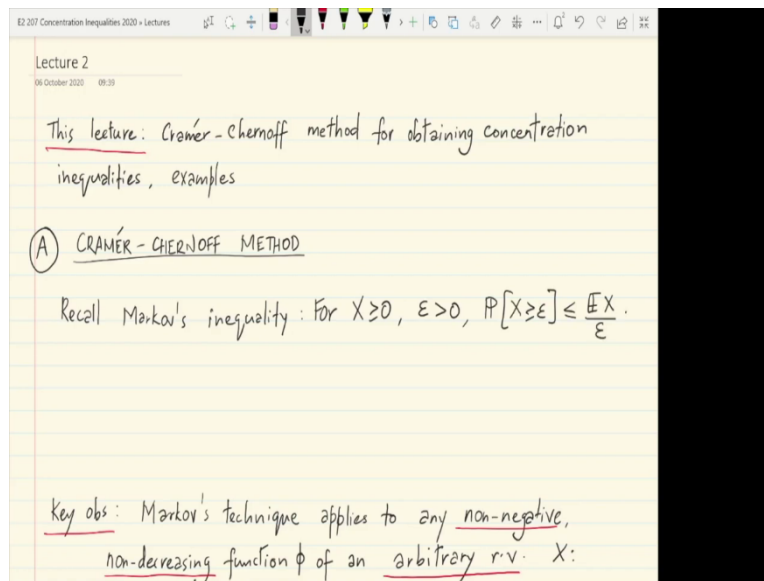 E2 207 Concentration Inequalities 2020 » Lectures
Lecture 2
06 October 2020 09:39
This lecture: Cramér-Chernoff method for obtaining concentration
inequalities, examples
A CRAMÉR-CHERNOFF METHOD
Recall Markov's inequality: For X≥0, ε>0, ℙ[X≥ε] ≤ 𝔼X/ε.
Key obs: Markov's technique applies to any non-negative,
non-decreasing function ϕ of an arbitrary r.v. X: